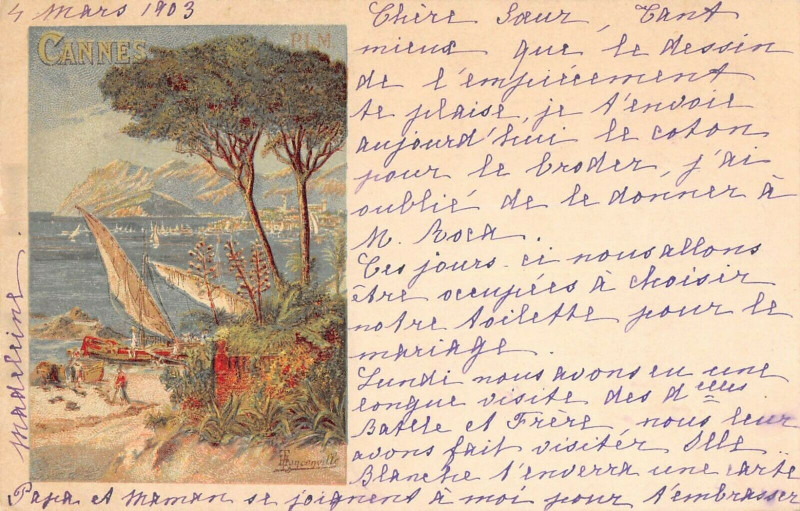 4 Mars 1903
CANNES
PLM
Chère Sœur, Tant
mieux que le dessin
de l'empiècement
te plaise, je t'envoie
aujourd'hui le coton
pour le broder, j'ai
oublié de le donner à
M. Roca.
Ces jours-ci nous allons
être occupées à choisir
notre toilette pour le
mariage.
Lundi nous avons eu une
longue visite des d elles
Batlle et Frère, nous leur
avons fait visiter
Blanche t'enverra une carte
Papa et Maman se joignent à moi pour t'embrasser
Madeleine.